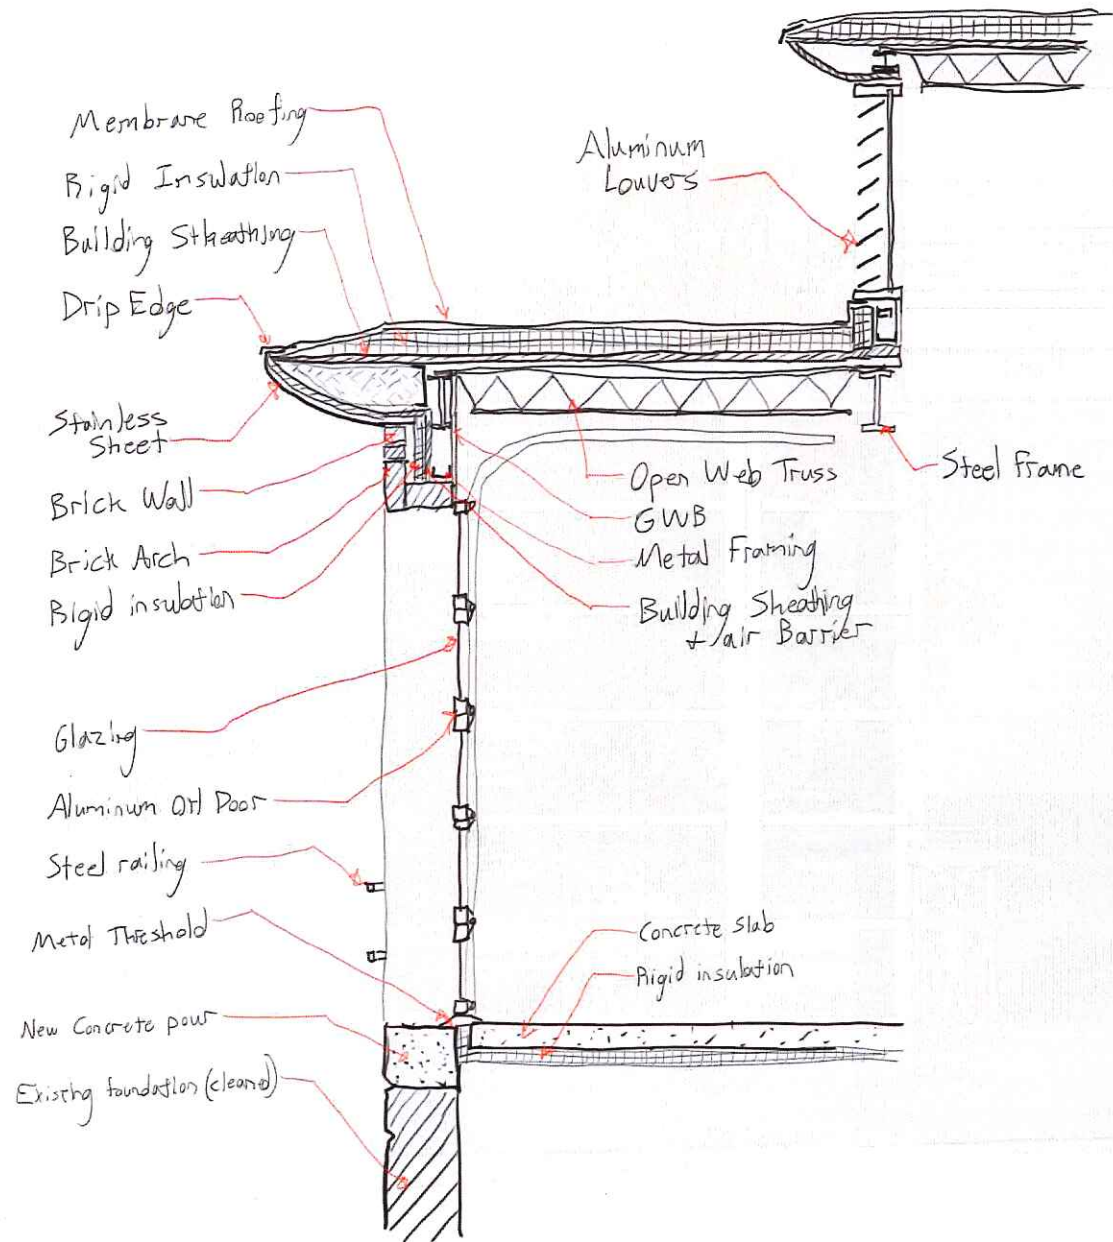 Membrane Roofing
Rigid Insulation
Building Stheathing
Drip Edge
Stainless
Sheet
Brick Wall
Brick Arch
Rigid insulation
Glazing
Aluminum OH Door
Steel railing
Metal Threshold
New Concrete pour
Existing foundation (cleaned)
Aluminum
Louvers
Steel Frame
Open Web Truss
GWB
Metal Framing
Building Sheathing
+ air Barrier
Concrete slab
Rigid insulation